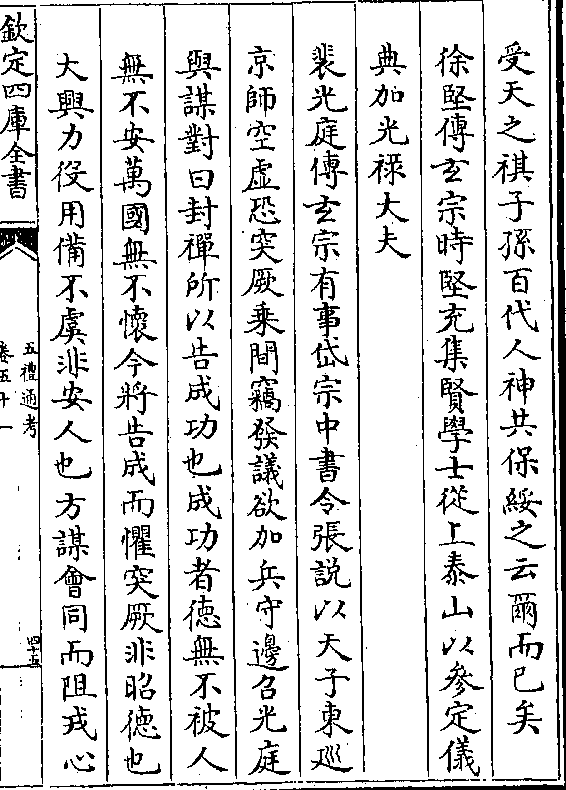 受天之祺子孫百代人神共保綏之云爾而已矣
徐堅傳玄宗時堅充集賢學士從上泰山以參定儀
典加光祿大夫
裴光庭傳玄宗有事岱宗中書令張説以天子東廵
京師空虛恐突厥乗間竊發議欲加兵守邊召光庭
與謀對曰封禪所以告成功也成功者徳無不被人
無不安萬國無不懷今將告成而懼突厥非昭徳也
大興力役用備不虞非安人也方謀會同而阻戎心
欽定四庫全書
五禮通考
卷五十一
四十五